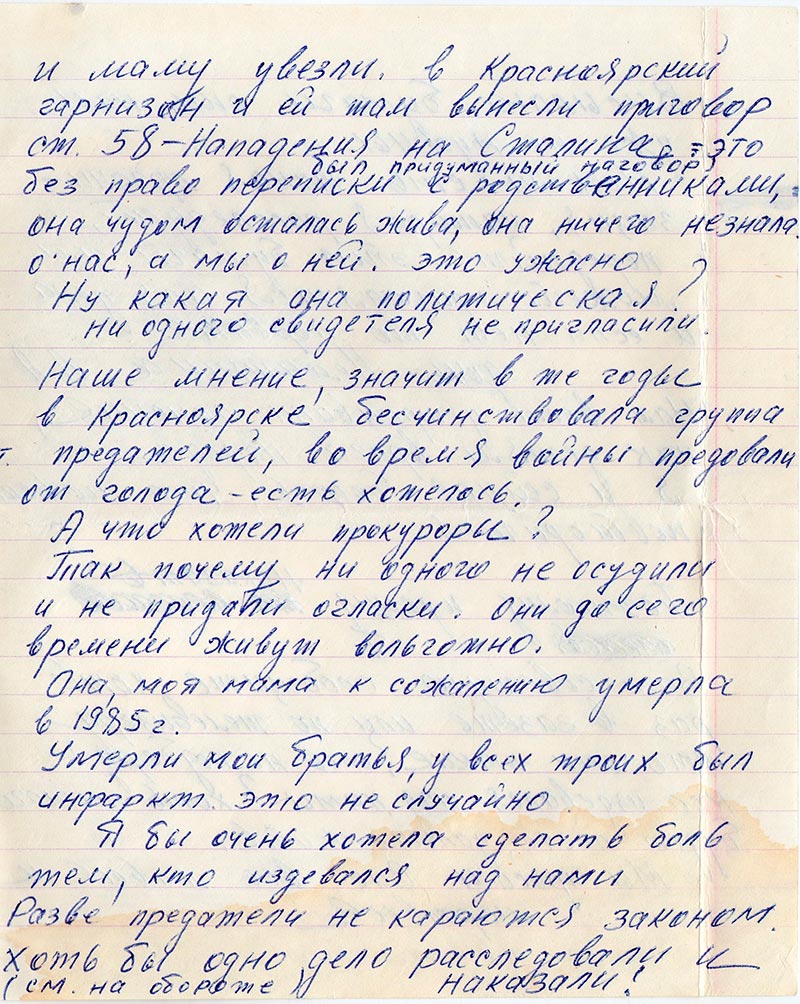 и маму увезли. в Красноярский
гарнизон и ей там вынесли приговор
ст. 58 – Нападения на Сталина. – это
был придуманный наговор
без право переписки с родственниками,
она чудом осталась жива, она ничего незнала.
о нас, а мы о ней. это ужасно
Ну какая она политическая?
ни одного свидетеля не пригласили.
Наше мнение, значит в те годы
в Красноярске бесчинствовала группа
т. предателей, во время войны предовали
от голода – есть хотелось.
А что хотели прокуроры?
Так почему ни одного не осудили
и не придали огласки. Они до сего
времени живут вольготно.
Она, моя мама к сожалению умерла
в 1985 г.
Умерли мои братья, у всех троих был
инфаркт. это не случайно
Я бы очень хотела сделать боль
тем, кто издевался над нами
Разве предатели не караются законом.
Хоть бы одно дело расследовали и
(см. на обороте) наказали!